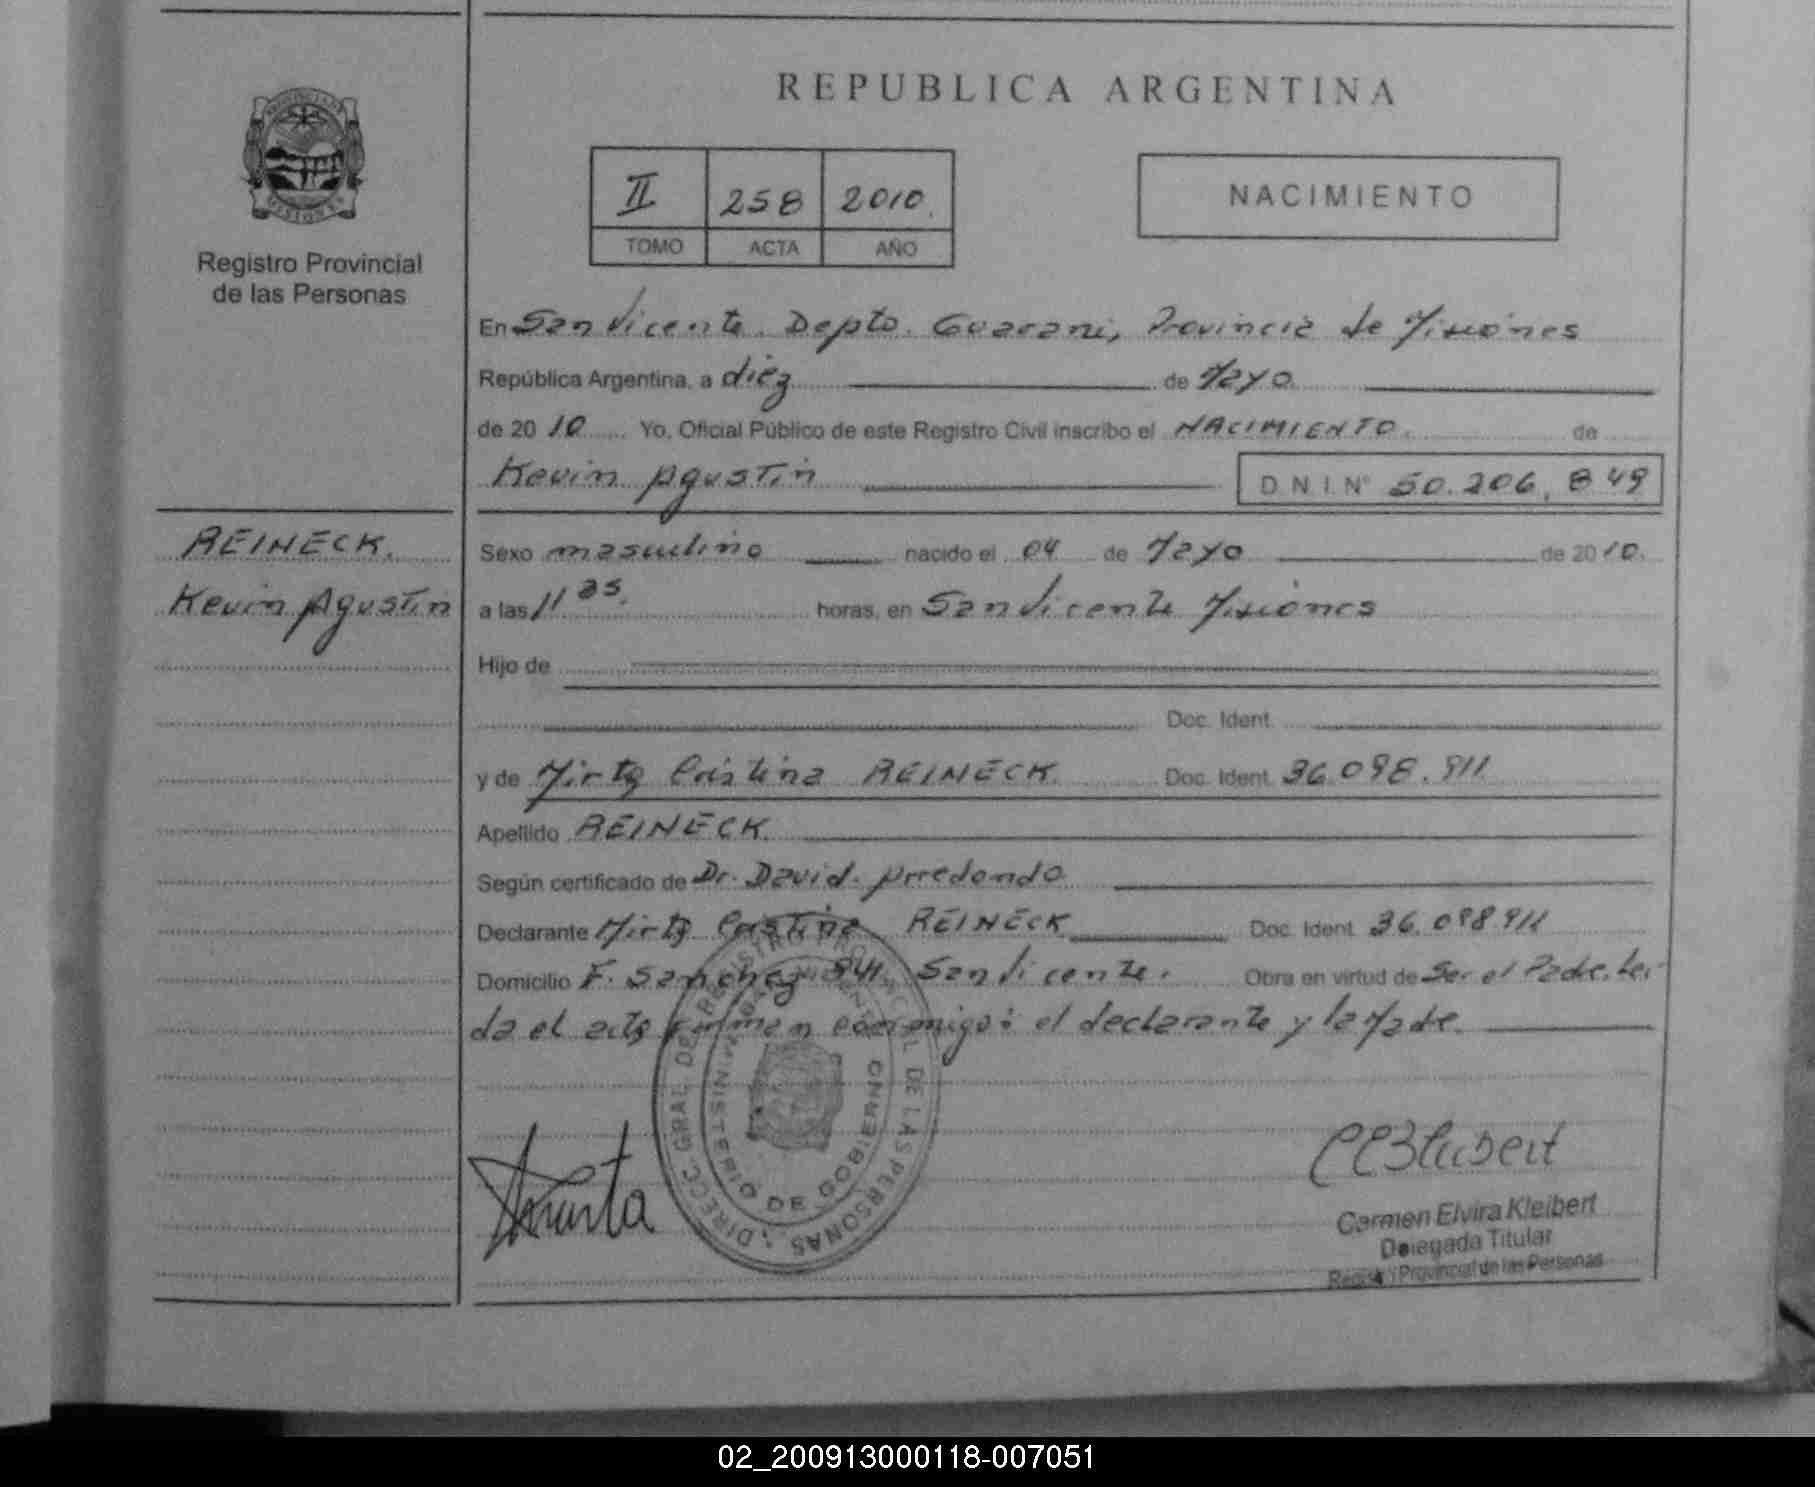 REPUBLICA ARGENTINA
PROVINCIA DE
MISIONES
Registro Provincial
de las Personas
II 258 2010.
TOMO ACTA AÑO
NACIMIENTO
En San Vicente. Depto. Guarani, Provincia de Misiones
República Argentina, a diez de Mayo
de 2010 Yo, Oficial Público de este Registro Civil inscribo el NACIMIENTO. de
Kevin Agustin D.N.I. N° 50.206.849
REINECK.
Kevin Agustin
Sexo masculino nacido el 04 de Mayo de 2010.
a las 11 35. horas, en San Vicente Misiones
Hijo de
Doc. Ident.
y de Mirta Cristina REINECK Doc. Ident. 36.098.911
Apellido REINECK.
Según certificado de Dr. David. Arredondo
Declarante Mirta Cristina REINECK Doc. Ident. 36.098.911
Domicilio F. Sanchez 941 San Vicente. Obra en virtud de Ser el Padre. Lei-
da el acta firman conmigo: el declarante y la Madre.
DIREC. GRAL. DE REGISTRO PROVINCIAL DE LAS PERSONAS
MINISTERIO DE GOBIERNO
Carmen Elvira Kleibert
Delegada Titular
Registro Provincial de las Personas
02_200913000118-007051